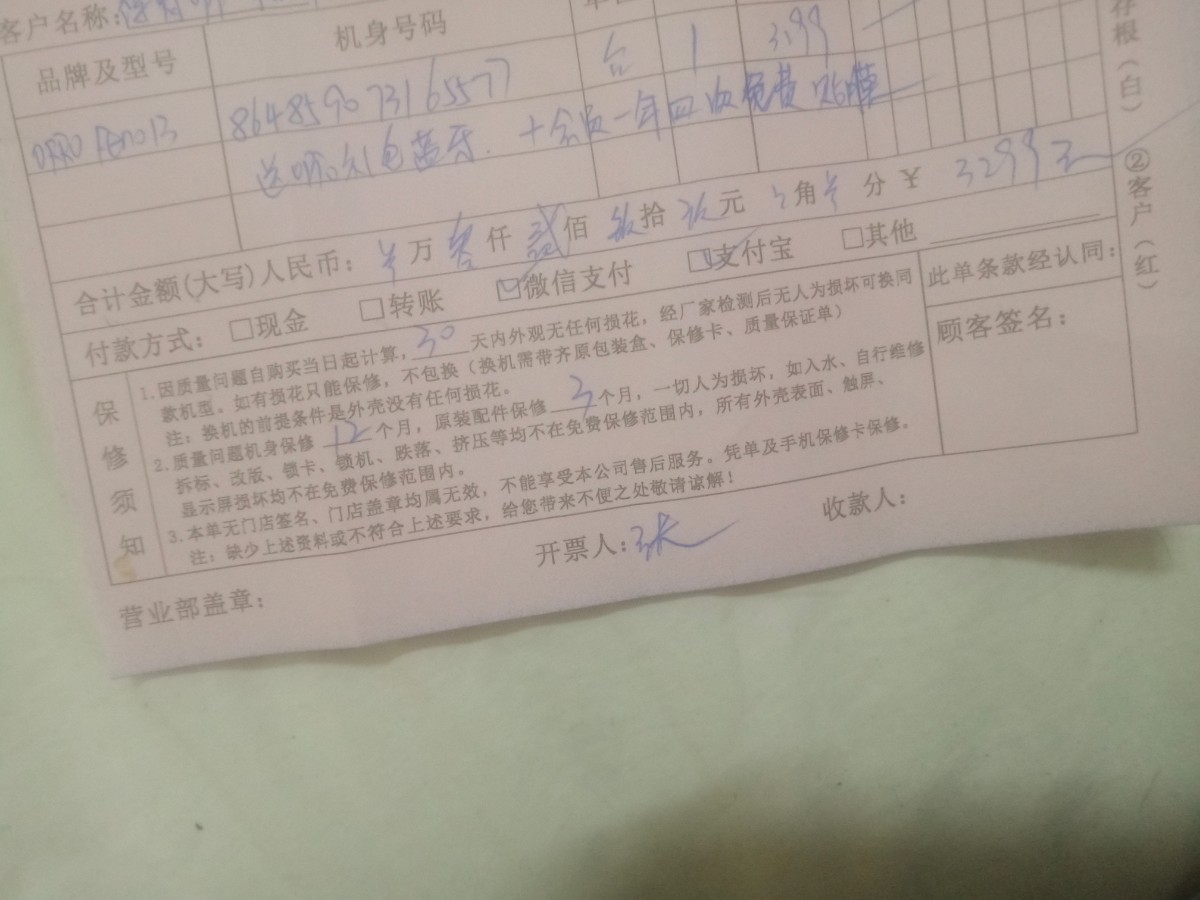 客户名称:
品牌及型号 机身号码
OPPO Reno13 864859073165577 台 1 3299
送 蓝牙. + 会员一年四次免费贴膜
合计金额(大写)人民币: 万 叁仟 贰佰 玖拾 玖元 角 分 ¥ 3299元
付款方式: □现金 □转账 ☑微信支付 ☑支付宝 □其他
保修须知
1.因质量问题自购买当日起计算, 30 天内外观无任何损花, 经厂家检测后无人为损坏可换同
款机型。如有损花只能保修, 不包换(换机需带齐原包装盒、保修卡、质量保证单)
注: 换机的前提条件是外壳没有任何损花。
2.质量问题机身保修 12 个月, 原装配件保修 3 个月, 一切人为损坏, 如入水、自行维修
拆标、改版、锁卡、锁机、跌落、挤压等均不在免费保修范围内, 所有外壳表面、触屏、
显示屏损坏均不在免费保修范围内。
3.本单无门店签名、门店盖章均属无效, 不能享受本公司售后服务。凭单及手机保修卡保修。
注: 缺少上述资料或不符合上述要求, 给您带来不便之处敬请谅解!
此单条款经认同:
顾客签名:
营业部盖章: 开票人: 张 收款人:
存根(白) ②客户(红)